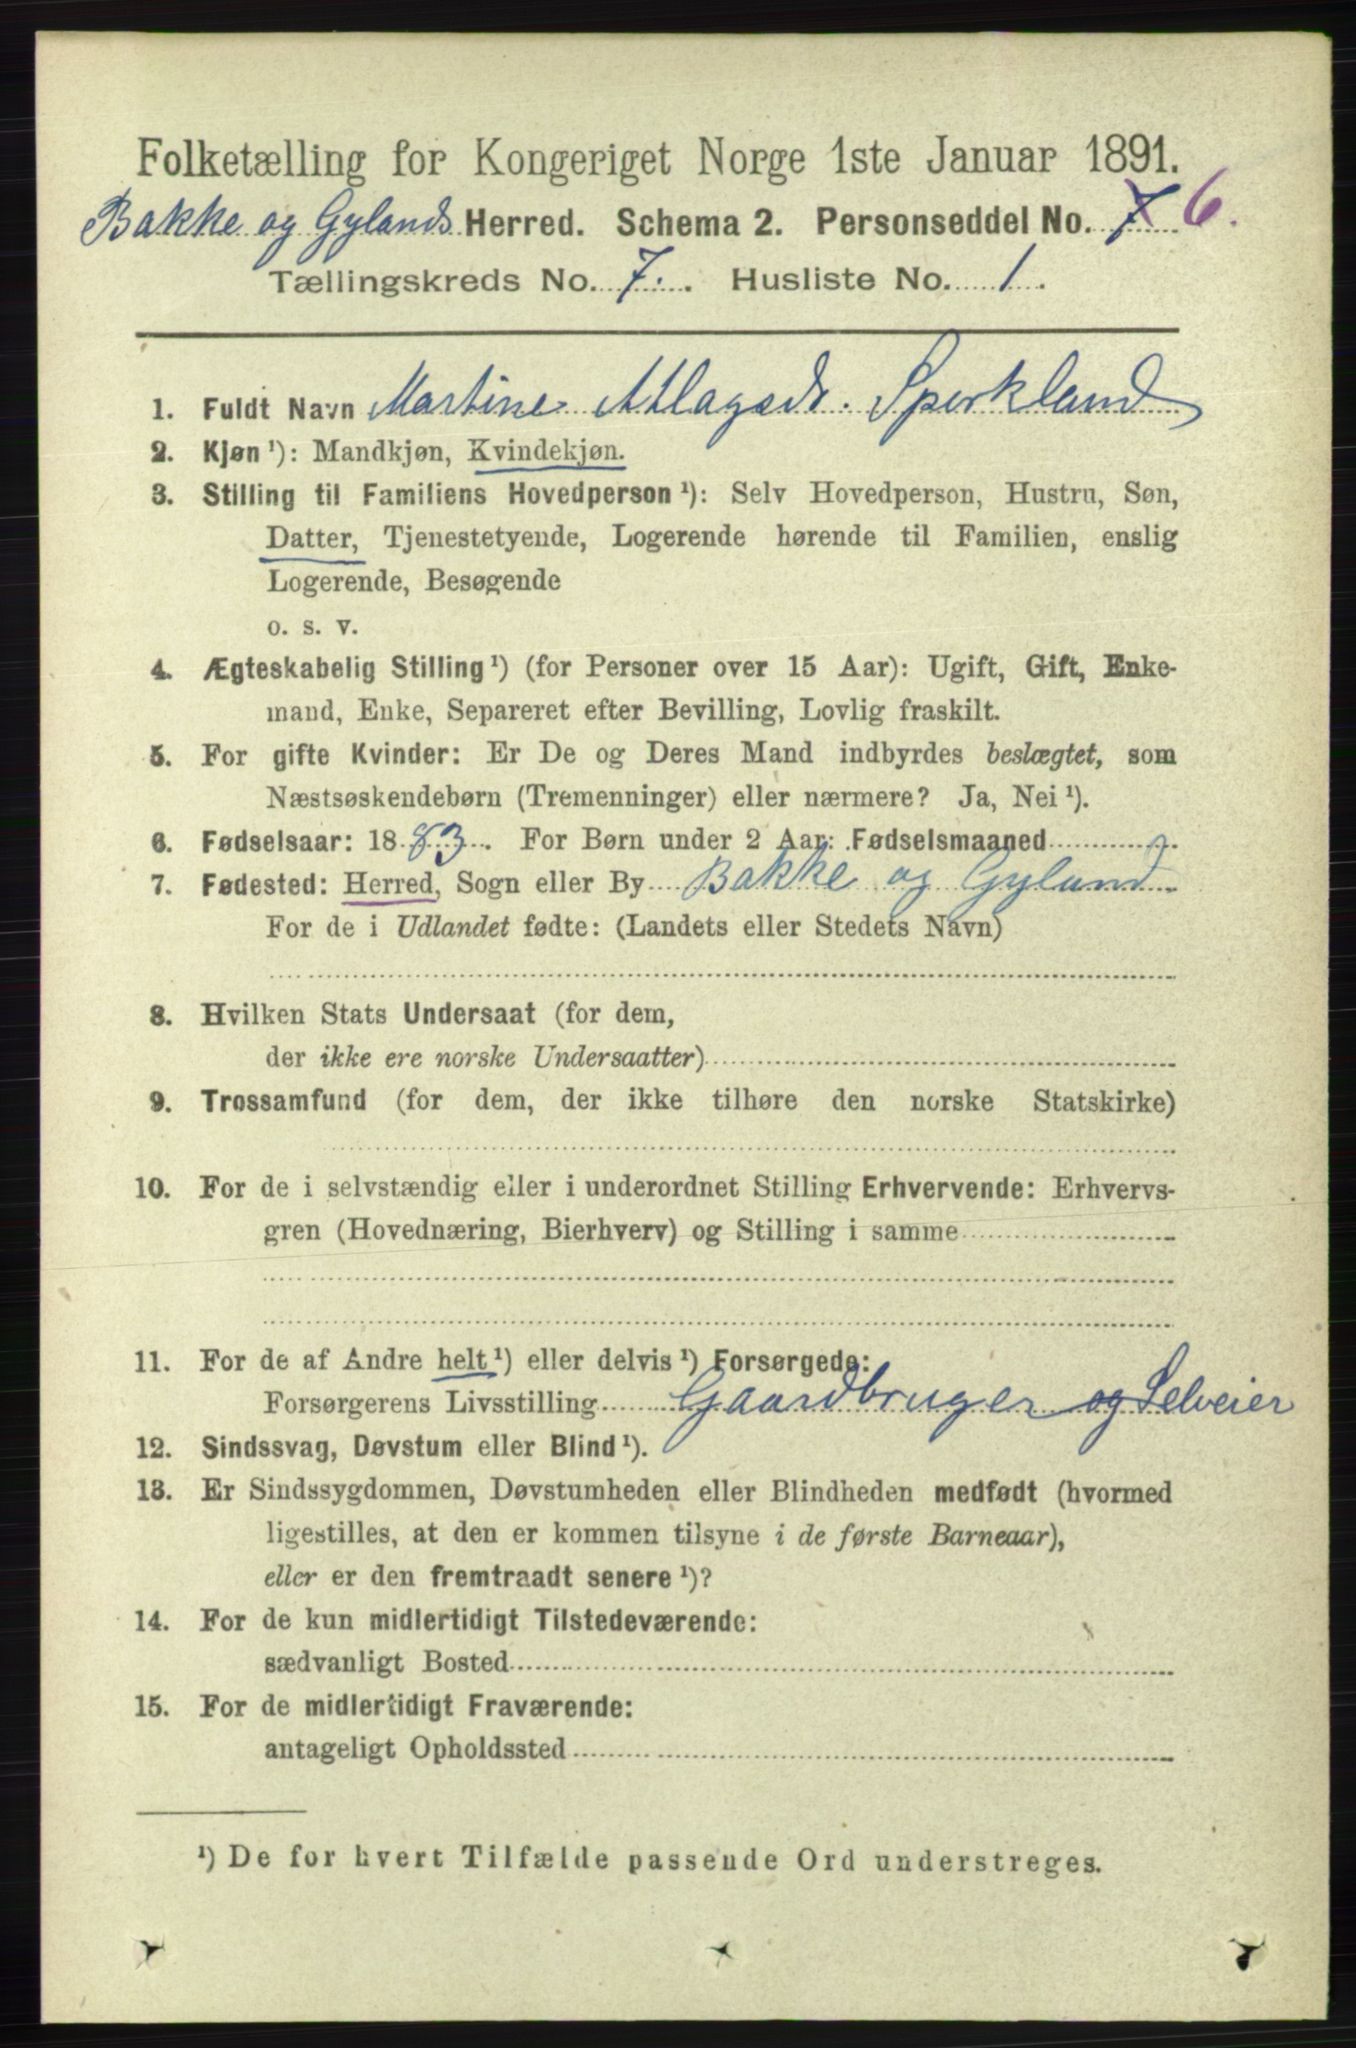 Folketælling for Kongeriget Norge 1ste Januar 1891.
Bakke og Gylands Herred. Schema 2. Personseddel No. 7 6.
Tællingskreds No. 7. Husliste No. 1.
1. Fuldt Navn Martine Atlagsdr. Sperkland
2. Kjøn ¹): Mandkjøn, Kvindekjøn.
3. Stilling til Familiens Hovedperson ¹): Selv Hovedperson, Hustru, Søn,
Datter, Tjenestetyende, Logerende hørende til Familien, enslig
Logerende, Besøgende
o. s. v.
4. Ægteskabelig Stilling ¹) (for Personer over 15 Aar): Ugift, Gift, Enke-
mand, Enke, Separeret efter Bevilling, Lovlig fraskilt.
5. For gifte Kvinder: Er De og Deres Mand indbyrdes beslægtet, som
Næstsøskendebørn (Tremenninger) eller nærmere? Ja, Nei ¹).
6. Fødselsaar: 1883. For Børn under 2 Aar: Fødselsmaaned
7. Fødested: Herred, Sogn eller By Bakke og Gyland
For de i Udlandet fødte: (Landets eller Stedets Navn)
8. Hvilken Stats Undersaat (for dem,
der ikke ere norske Undersaatter)
9. Trossamfund (for dem, der ikke tilhøre den norske Statskirke)
10. For de i selvstændig eller i underordnet Stilling Erhvervende: Erhvervs-
gren (Hovednæring, Bierhverv) og Stilling i samme
11. For de af Andre helt ¹) eller delvis ¹) Forsørgede:
Forsørgerens Livsstilling Gaardbruger og Selveier
12. Sindssvag, Døvstum eller Blind ¹).
13. Er Sindssygdommen, Døvstumheden eller Blindheden medfødt (hvormed
ligestilles, at den er kommen tilsyne i de første Barneaar),
eller er den fremtraadt senere ¹)?
14. For de kun midlertidigt Tilstedeværende:
sædvanligt Bosted
15. For de midlertidigt Fraværende:
antageligt Opholdssted
¹) De for hvert Tilfælde passende Ord understreges.